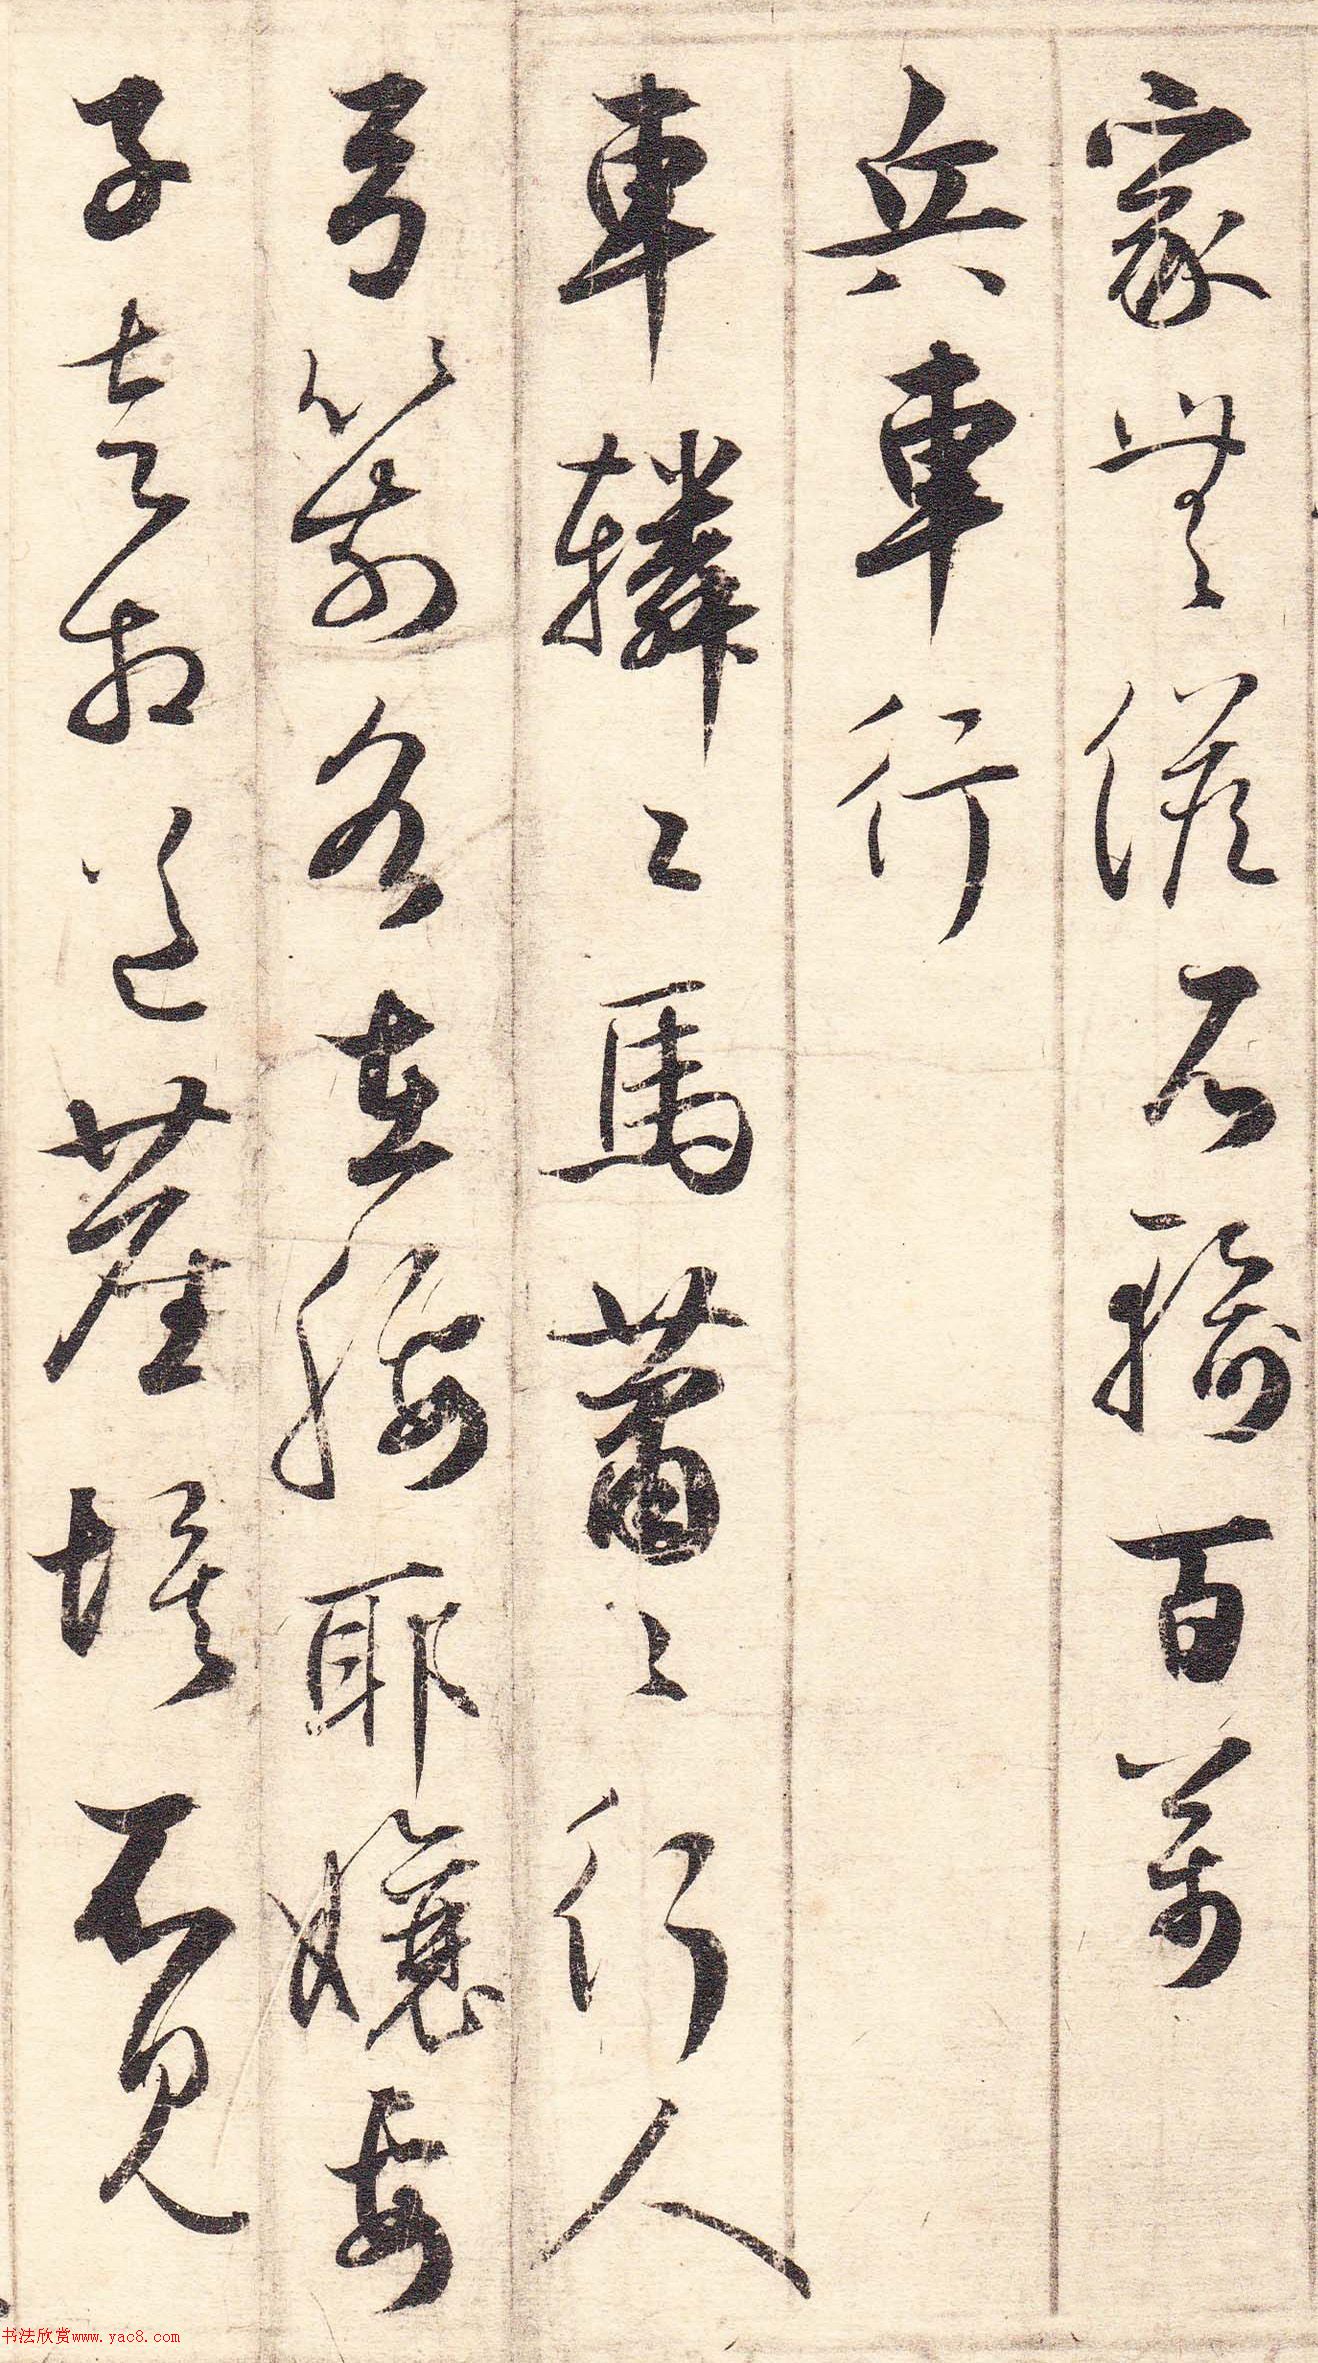 家無儋石輸百萬
兵車行
車轔〻馬蕭〻行人
弓箭各在腰耶孃妻
子走相送塵埃不見
书法欣赏www.yac8.com